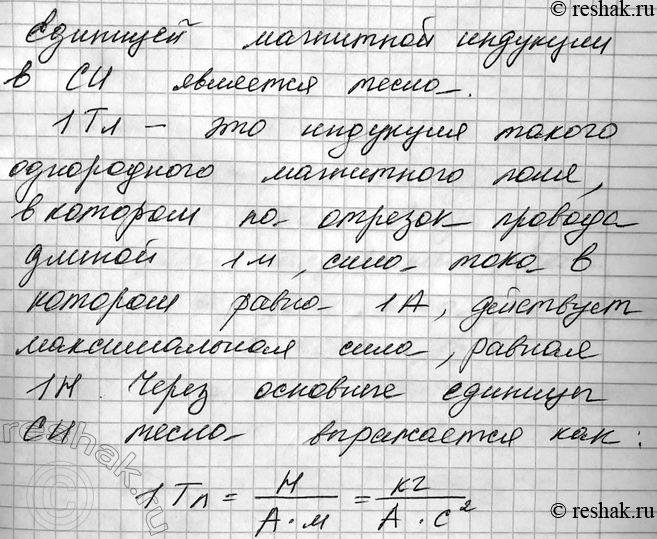 © reshak.ru
Единицей магнитной индукции
в СИ является тесла.
1 Тл – это индукция такого
однородного магнитного поля,
в котором на отрезок провода
длиной 1 м, сила тока в
котором равна 1 А, действует
максимальная сила, равная
1 Н. Через основные единицы
СИ тесла выражается как:
1 Тл = Н / А · м = кг / А · с²
reshak.ru
© reshak.ru